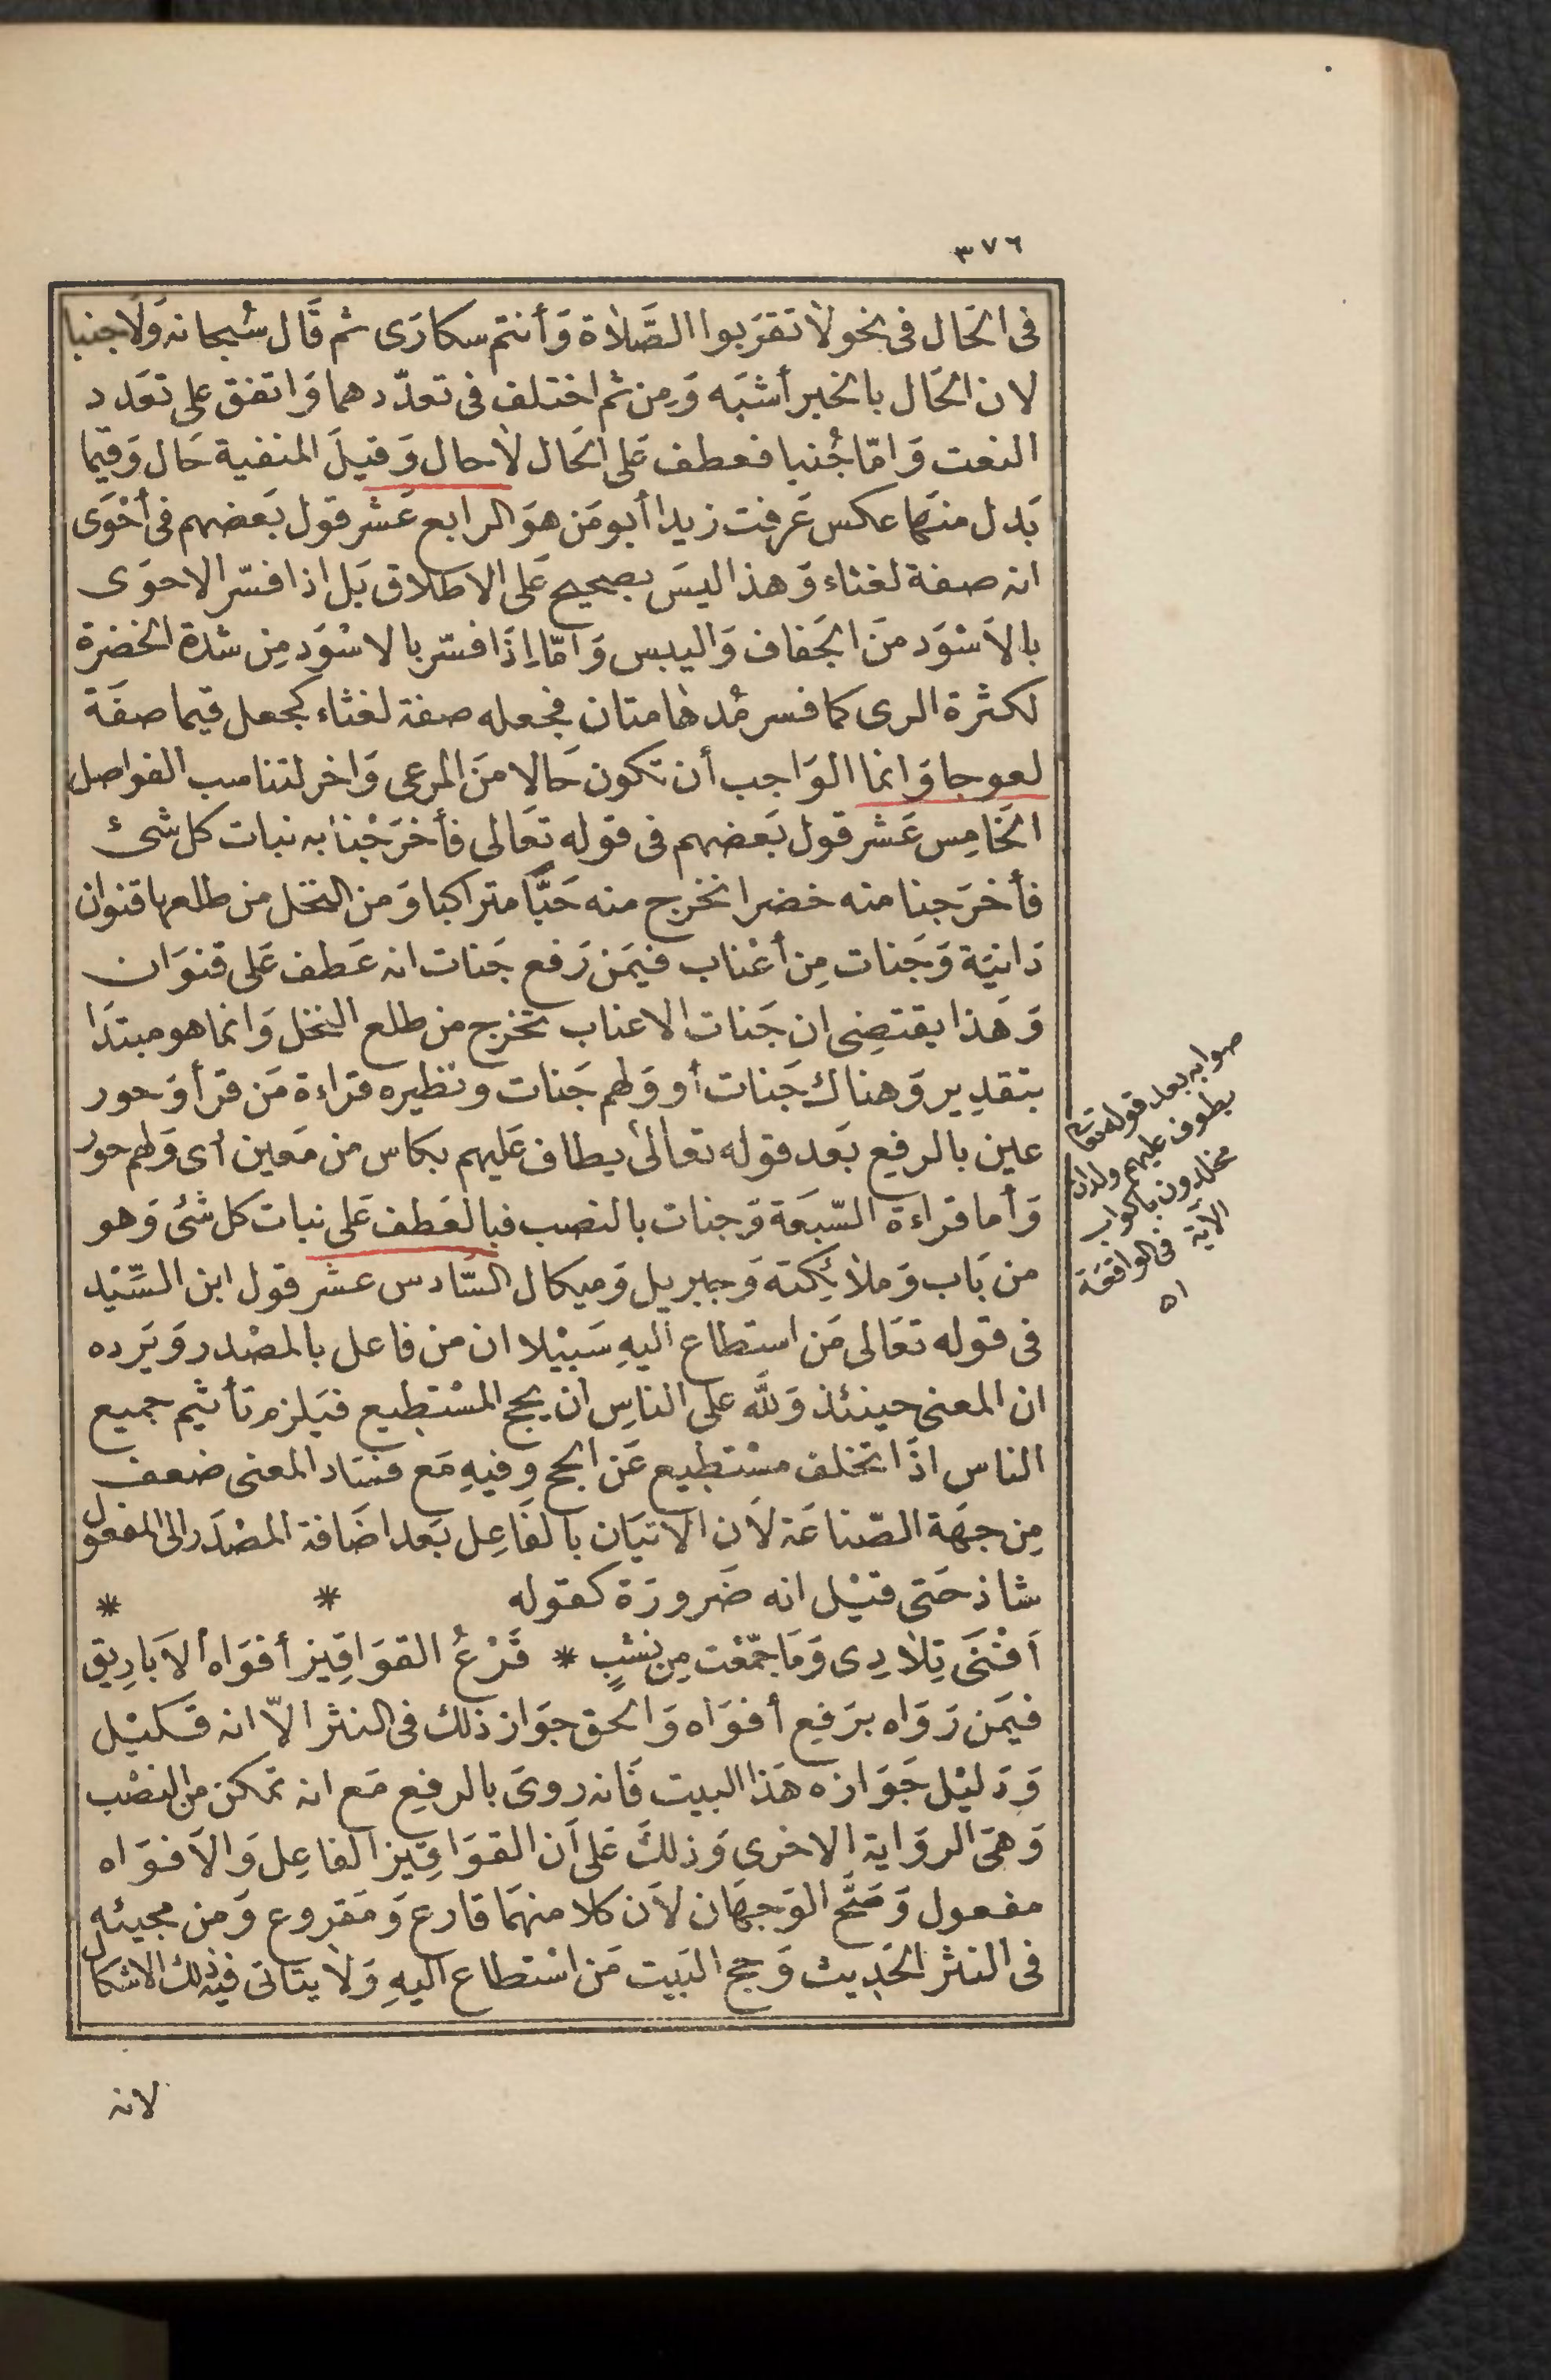 ٣٧٦
فى الحَال فى نحو لا تقرَبوا الصَّلاة وَأنتم سكارَى ثم قَال سُبحانه وَلَا جنبا
لان الحَال بالخبر أشبَه وَمِن ثم اختلف فى تعدّدهما وَاتفق على تعَدد
النعت وَامّا جُنبا فعطف عَلى الحَال لاحال وَقيلَ المنفية حَال وَقيما
بَدل منهَا عكس عَرفت زيدا أبو مَن هوَ الرابع عَشر قول بَعضهم فى أحْوَى
انه صفة لغثاء وَهذا ليسَ بصحيح عَلى الاطلاق بَل اذا فسّر الاحوَى
بالاَسْوَد منَ الجَفاف وَاليبس وَامّا اِذَا فسّر بالاسْوَد مِن شدة الخضرة
لكثرة الرى كما فسر مُدهامتان فجعله صفة لغثاء كجعل قيما صفَة
لعوجا وَانما الوَاجب أن تكون حَالا منَ المرعى وَاخر لتناسب الفواصل
الخَامِس عَشر قول بَعضهم فى قوله تعَالى فأخرَجْنا به نبات كل شىء
فأخرَجنا منه خضرا نخرج منه حَبًّا متراكبا وَمن النخل من طلعها قنوان
دَانيَة وَجَنات مِن أعْناب فيمَن رَفع جَنات انه عَطف عَلى قنوَان
وَهَذا يقتضِى ان جَنات الاعناب تخرج من طلع النخل وَانما هو مبتدَا
بتقدِير وَهناك جَنات أو وَلهم جَنات ونظيره قراءة مَن قرأ وَحور
عين بالرفع بَعد قوله تعالىٰ يطاف عَليهم بكاس من مَعين أى وَلهم حور
وَأما قراءة السّبعَة وَجنات بالنصب فبالعَطف عَلى نبات كل شئ وَهو
من بَاب وَملائِكته وَجبريل وَميكال السَّادس عشر قول ابن السِّيْد
فى قوله تعَالى مَن استطاع اليهِ سَبيْلا ان من فاعل بالمصْدر وَيَرده
ان المعنى حينئذ وَللَّه على الناسِ ان يحج المسْتطِيع فيَلزم تأثيم جميع
الناس اذَا تخلف مسْتطِيع عَن الحج وفيهِ مَع فسَاد المعنى ضعف
مِن جهَة الصّناعَة لاَن الاتيَان بالفَاعِل بَعد اضَافة المصْدَر الى المفعول
شاذ حَتى قيْل انه ضَرورَة كقوله * *
اَفْنَى تِلادِى وَمَا جمّعْت مِن نشْبٍ * قَرْعُ القوَاقِيز أفوَاه الاَبَارِيق
فيمَن رَوَاه برَفعِ أفوَاه وَالحق جوَاز ذلك فى النثر الاّ انه قَليْل
وَدَليْل جَوَازه هَذا البيت فَانه روىَ بالرفعِ مَع انه تمكن من النصْب
وَهىَ الروَاية الاخرى وَذلكَ عَلى اَن القوَاقِيز الفاعِل وَالاَفوَاه
مفعول وَصَحَّ الوَجهَان لاَن كلا منهمَا قارع وَمَقروع وَمن مجيئه
فى النثر الحَدِيث وَحج البَيت مَن اسْتطاع اليهِ وَلا يتَاتى فيه ذلك الاشكال
لانه
صوابه بعد قوله تعالى
يطوف عليهم ولدان
مخلدون باكواب
الآية فى الواقعَة
اه